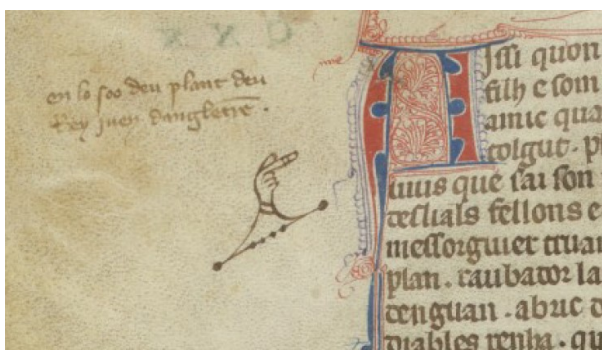 en lo soo deu plant deu
Rey iuen dangleterre .
AIssi quon
filh e som
amic qua
tolgut. p
que sai son
deslials fellons e
messorguier truan
plan. raubador la
denguan. abric d
diables renha. qu